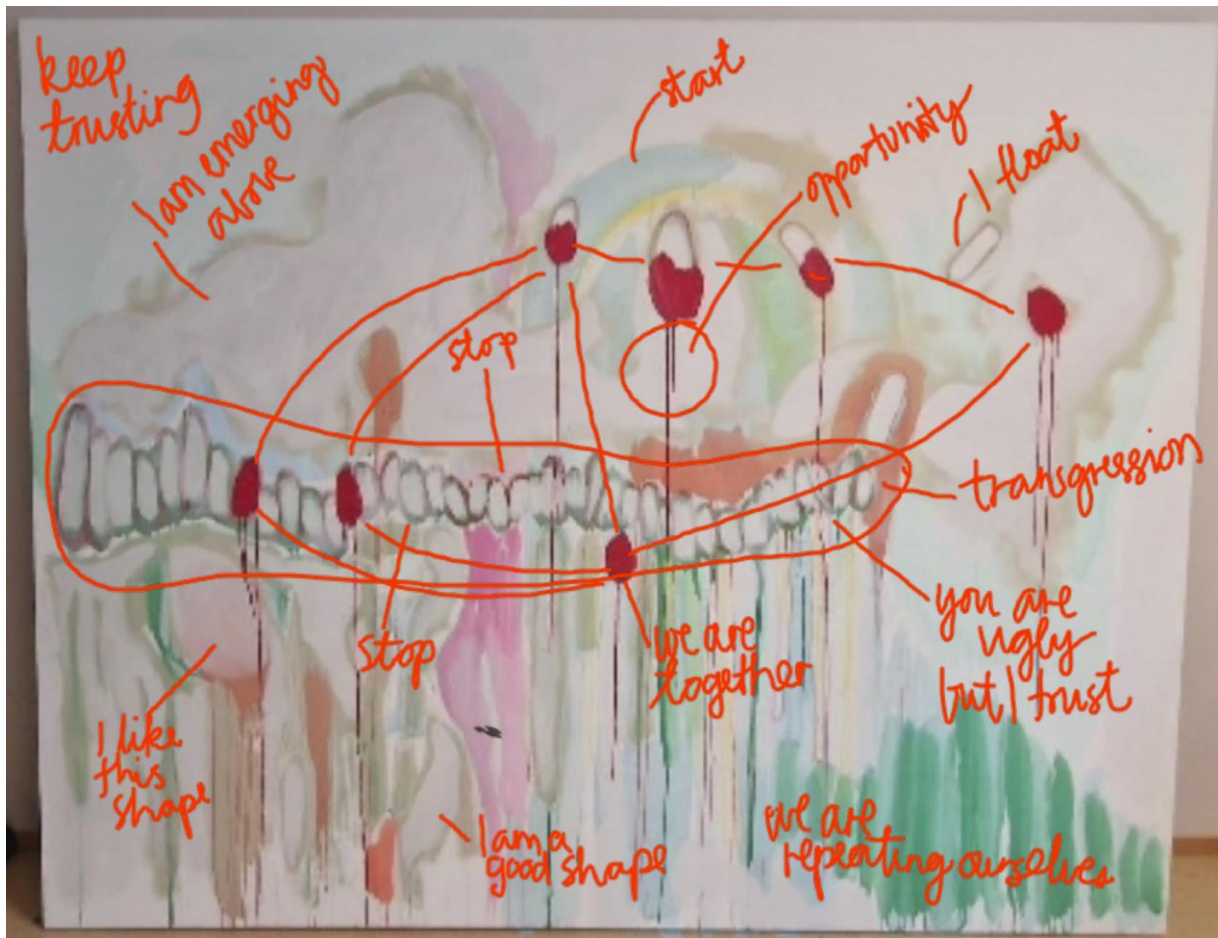 keep
trusting
I am emerging
above
start
opportunity
I float
stop
transgression
stop
we are
together
you are
ugly
but I trust
I like
this
shape
I am a
good shape
we are
repeating ourselves